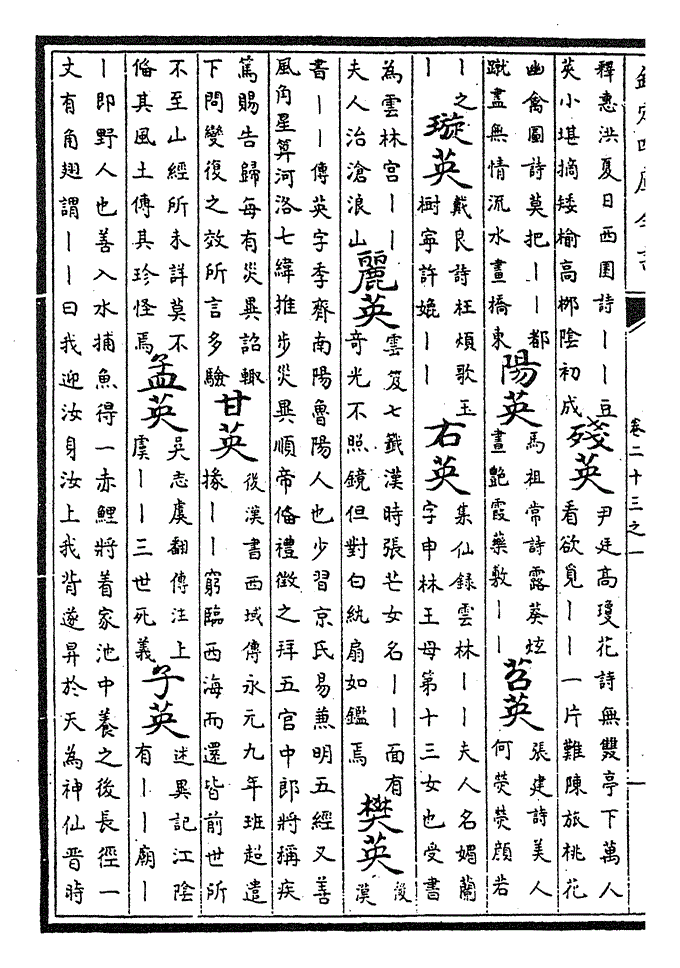 欽定四庫全書
卷二十三之一
一
釋惠洪夏日西園詩丨丨豆
英小堪摘矮榆高梛陰初成
殘英
尹廷高瓊花詩無雙亭下萬人
看欲覓丨丨一片難陳旅桃花
幽禽圖詩莫把丨丨都
蹴盡無情流水畫橋東
陽英
馬祖常詩露葵炫
晝艷霞藥敷丨丨
苕英
張建詩美人
何熒熒顏若
丨之
丨
璇英
戴良詩枉煩歌玉
樹寧許媲丨丨
右英
集仙錄雲林丨丨夫人名媚蘭
字申林王母第十三女也受書
為雲林宮丨丨
夫人治滄浪山
麗英
雲笈七籤漢時張芒女名丨丨面有
奇光不照鏡但對白紈扇如鑑焉
樊英
後
漢
書丨丨傳英字季齊南陽魯陽人也少習京氏易兼明五經又善
風角星算河洛七緯推步災異順帝備禮徵之拜五官中郎將稱疾
篤賜告歸每有災異詔輙
下問變復之效所言多驗
甘英
後漢書西域傳永元九年班超遣
掾丨丨窮臨西海而還皆前世所
不至山經所未詳莫不
備其風土傳其珍怪焉
孟英
吳志虞翻傳注上
虞丨丨三世死義
子英
述異記江陰
有丨丨廟丨
丨即野人也善入水捕魚得一赤鯉將着家池中養之後長徑一
丈有角翅謂丨丨曰我迎汝身汝上我背遂昇於天為神仙晋時